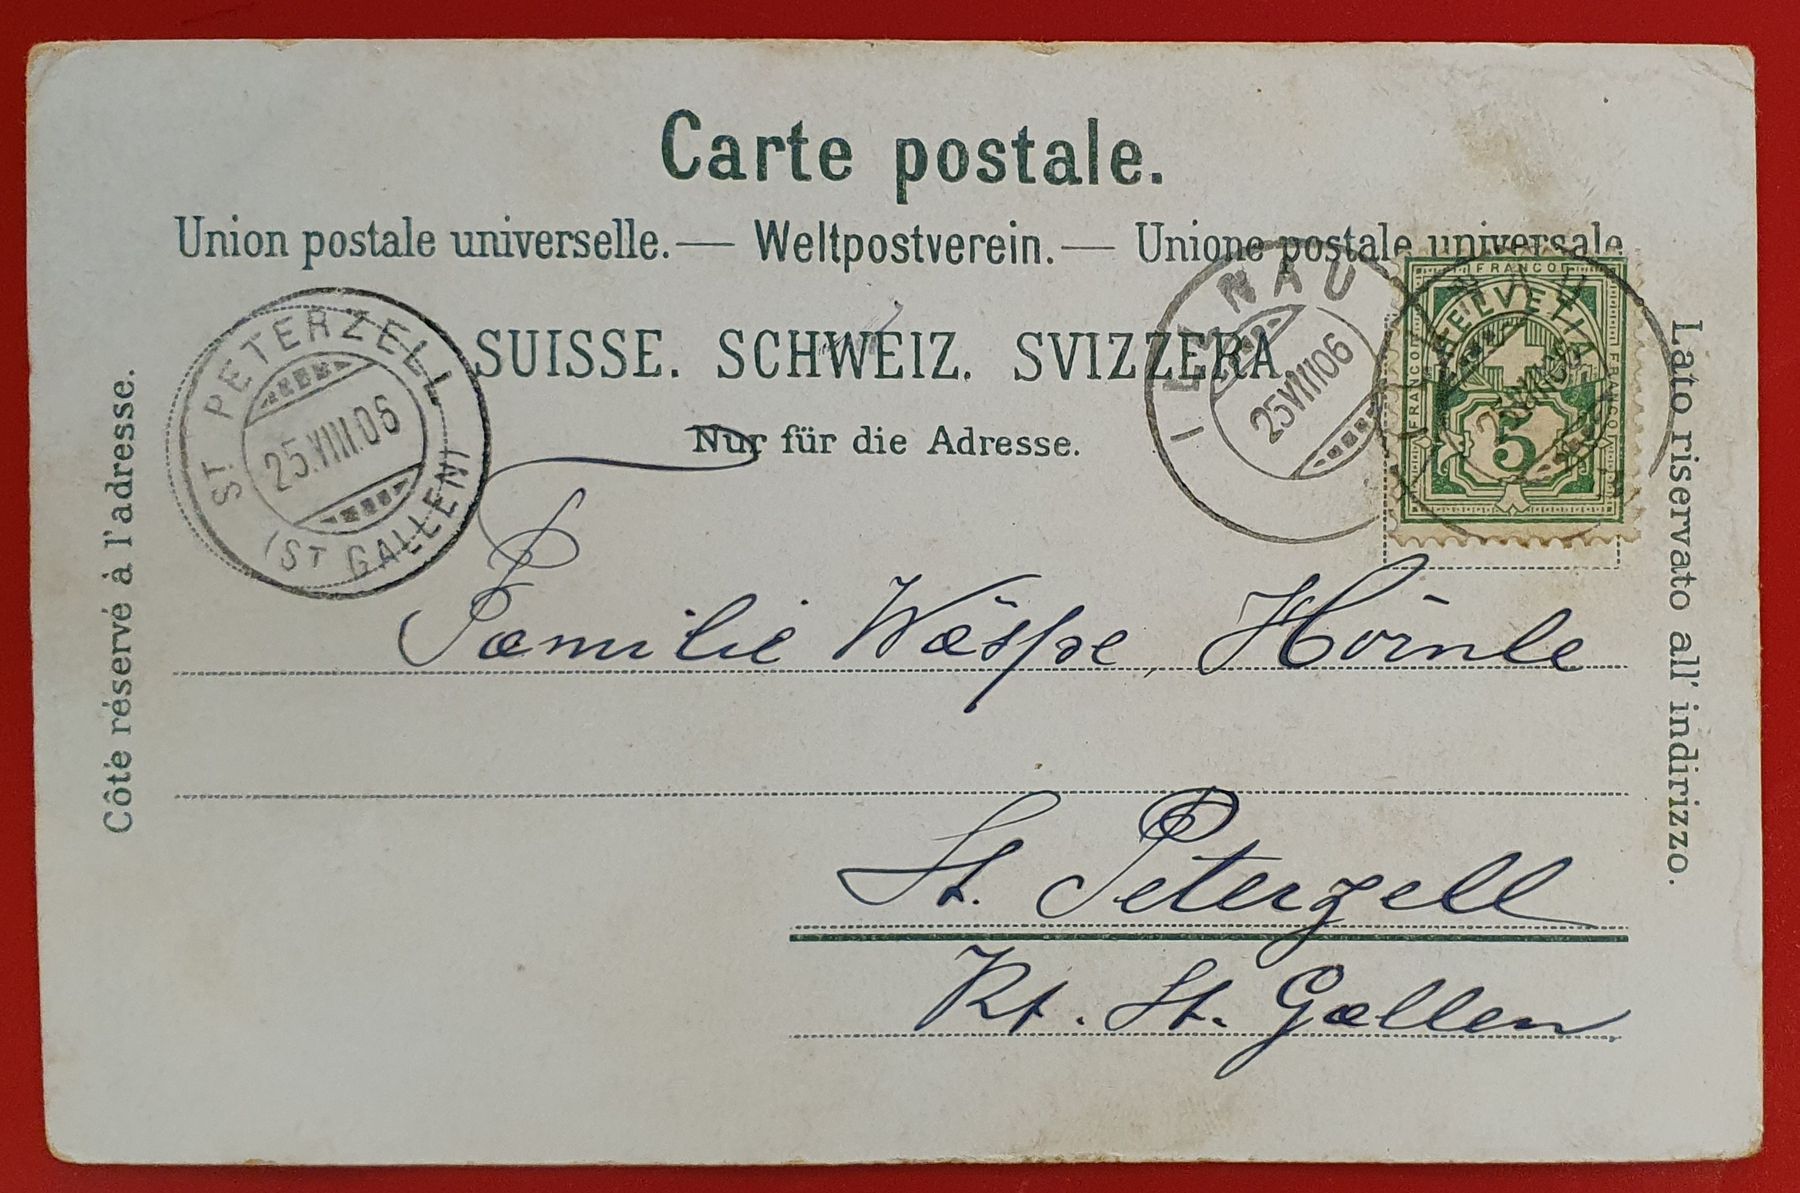 Carte postale.
Union postale universelle. — Weltpostverein. — Unione postale universale
SUISSE. SCHWEIZ. SVIZZERA.
Nur für die Adresse.
Côté réservé à l'adresse.
Lato riservato all' indirizzo.
ST PETERZELL
25.VIII.06
(ST GALLEN)
ILLNAU
25VIII06
FRANCO
HELVETIA
FRANCO
FRANCO
5
Familie Wäspe, Hörnle
St. Peterzell
Kt. St. Gallen